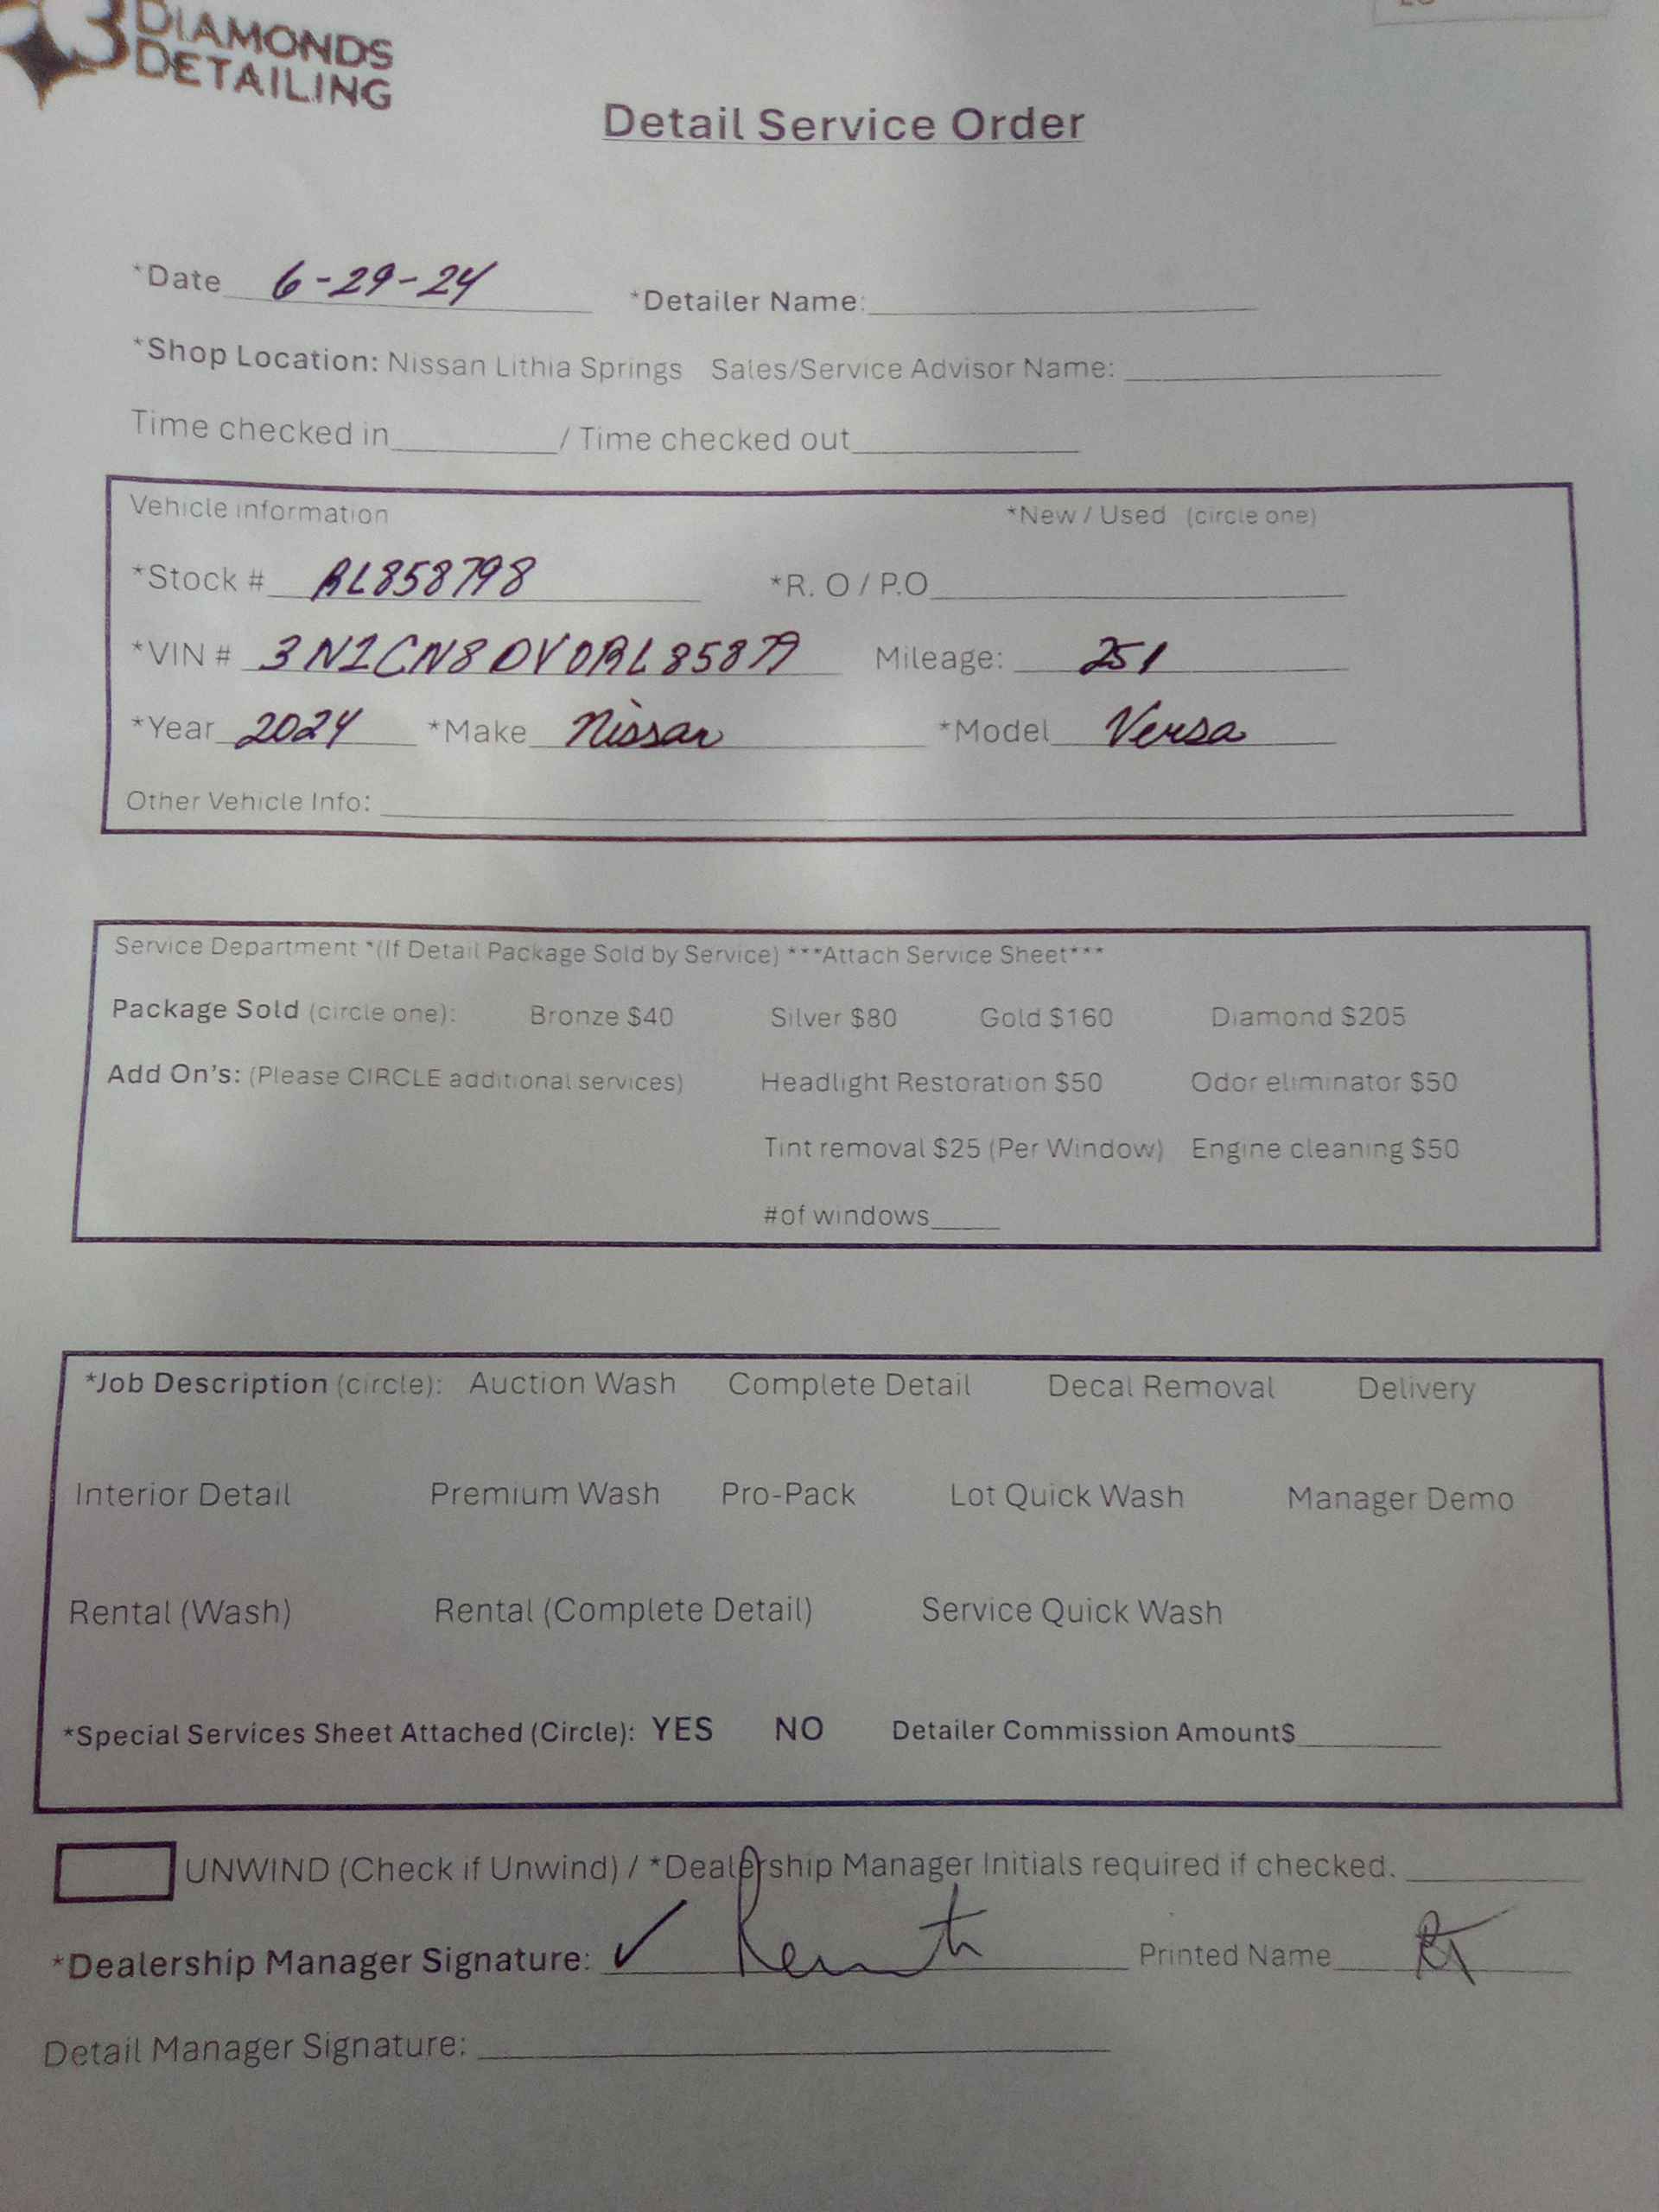 3 DIAMONDS
DETAILING
Detail Service Order
*Date 6-29-24 *Detailer Name:
*Shop Location: Nissan Lithia Springs Sales/Service Advisor Name:
Time checked in / Time checked out
Vehicle information *New / Used (circle one)
*Stock # RL858798 *R. O / P.O
*VIN # 3N1CN8DV0RL85879 Mileage: 251
*Year 2024 *Make Nissan *Model Versa
Other Vehicle Info:
Service Department *(If Detail Package Sold by Service) ***Attach Service Sheet***
Package Sold (circle one): Bronze $40 Silver $80 Gold $160 Diamond $205
Add On's: (Please CIRCLE additional services) Headlight Restoration $50 Odor eliminator $50
Tint removal $25 (Per Window) Engine cleaning $50
#of windows
*Job Description (circle): Auction Wash Complete Detail Decal Removal Delivery
Interior Detail Premium Wash Pro-Pack Lot Quick Wash Manager Demo
Rental (Wash) Rental (Complete Detail) Service Quick Wash
*Special Services Sheet Attached (Circle): YES NO Detailer Commission Amount$
UNWIND (Check if Unwind) / *Dealership Manager Initials required if checked.
*Dealership Manager Signature: ✓ Printed Name
Detail Manager Signature: